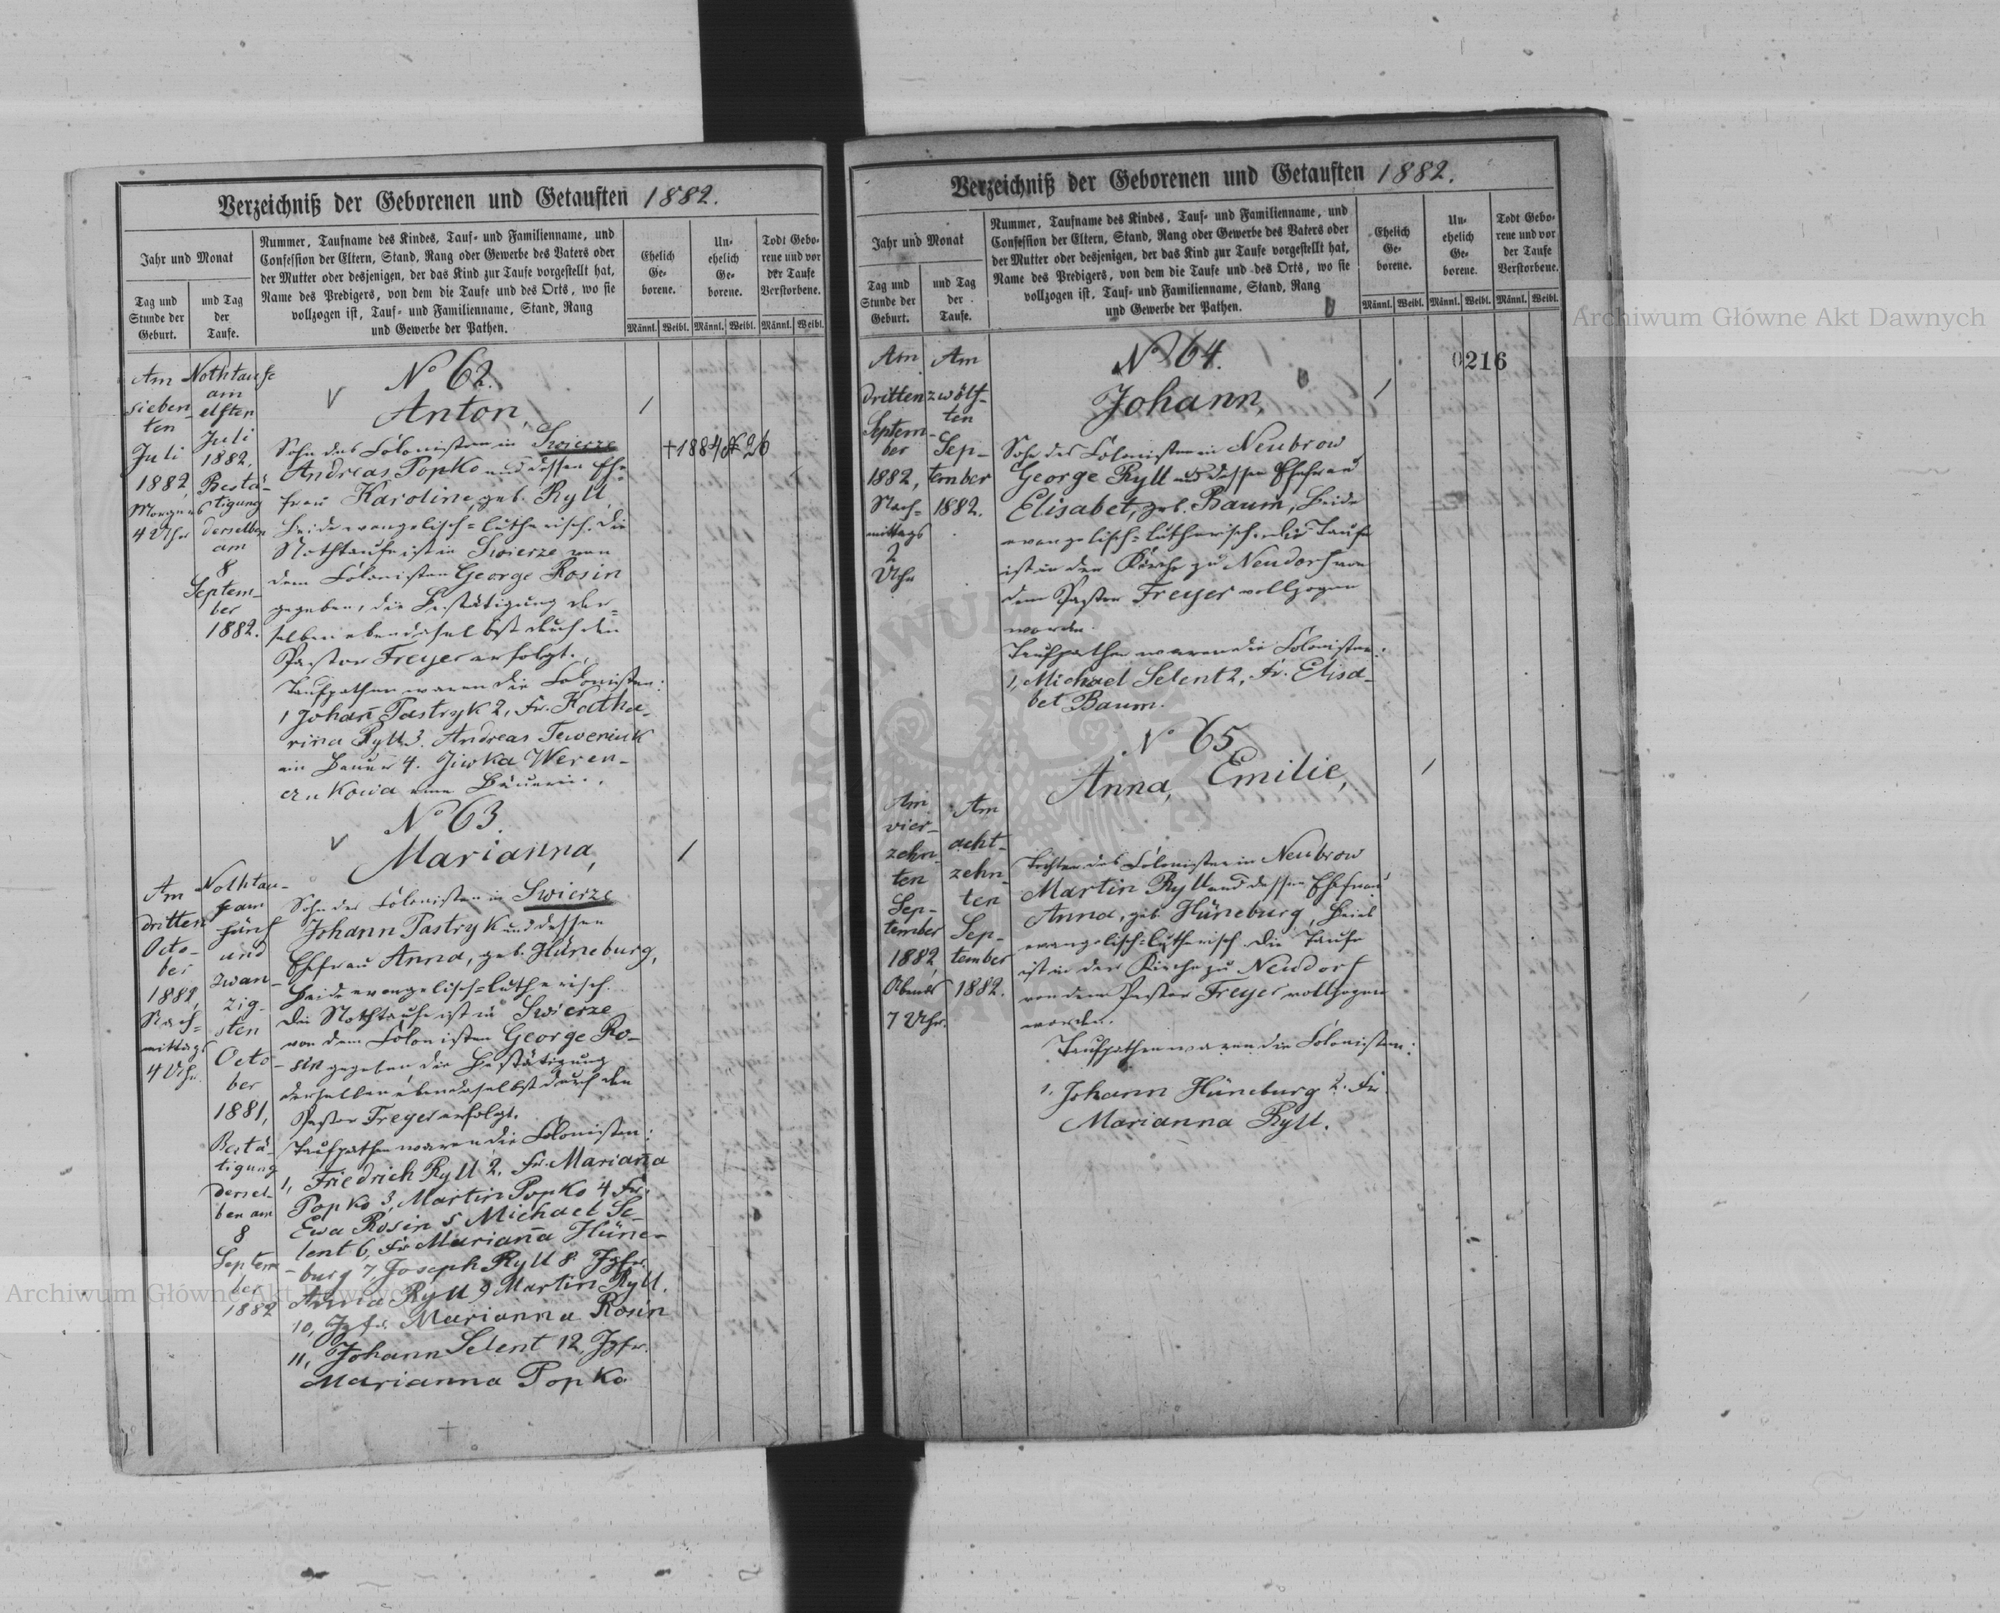 Verzeichniß der Geborenen und Getauften 1882.
Jahr und Monat
Tag und
Stunde der
Geburt.
und Tag
der
Taufe.
Nummer, Taufname des Kindes, Tauf- und Familienname, und
Confession der Eltern, Stand, Rang oder Gewerbe des Vaters oder
der Mutter oder desjenigen, der das Kind zur Taufe vorgestellt hat,
Name des Predigers, von dem die Taufe und des Orts, wo sie
vollzogen ist, Tauf- und Familienname, Stand, Rang
und Gewerbe der Pathen.
Ehelich
Ge-
borene.
Un-
ehelich
Ge-
borene.
Todt Gebo-
rene und vor
der Taufe
Verstorbene.
Männl. Weibl. Männl. Weibl. Männl. Weibl.
Am
sieben-
ten
Juli
1882,
Morgens
4 Uhr
Nothtaufe
am
elften
Juli
1882,
Bestä-
tigung
derselben
am
8
Septem-
ber
1882.
No 62.
Anton,
Sohn des Colonisten in Swierze
Andreas Popko und dessen Ehe-
frau Karoline, geb. Ryll,
Beide evangelisch-lutherisch. Die
Nothtaufe ist in Swierze von
dem Colonisten George Rosin
gegeben, die Bestätigung der-
selben ebendaselbst durch den
Pastor Freyer erfolgt.
Taufpathen waren die Colonisten:
1, Johañ Pastryk 2, Fr. Katha-
rina Ryll 3. Andreas
ein Bauer 4. Juwka Weren-
czukowa eine Bäuerin.
/
†1884 N 26
No 63.
Marianna,
Am
dritten
Octo-
ber
1882,
Nach-
mittags
4 Uhr.
Nothtau-
fe am
fünf
und
zwan-
zig-
sten
Octo-
ber
1881,
Bestä-
tigung
dersel-
ben am
8
Septem-
ber
1882
Sohn des Colonisten in Swierze
Johann Pastryk und dessen
Ehefrau Anna, geb. Hüneburg,
Beide evangelisch-lutherisch.
Die Nothtaufe ist in Swierze
von dem Colonisten George Ro-
sin gegeben die Bestätigung
derselben ebendaselbst durch den
Pastor Freyer erfolgt.
Taufpathen waren die Colonisten:
1, Friedrich Ryll 2. Fr. Mariaña
Popko 3, Martin Popko 4 Fr.
Ewa Rosin 5 Michael Se-
lent 6, Fr Mariaña Hüne-
burg 7, Joseph Ryll 8. Jgfr.
Anna Ryll 9 Martin Ryll.
10, Jgfr. Marianna Rosin
11, Johann Selent 12, Jgfr.
Marianna Popko
/
Verzeichniß der Geborenen und Getauften 1882.
Jahr und Monat
Tag und
Stunde der
Geburt.
und Tag
der
Taufe.
Nummer, Taufname des Kindes, Tauf- und Familienname, und
Confession der Eltern, Stand, Rang oder Gewerbe des Vaters oder
der Mutter oder desjenigen, der das Kind zur Taufe vorgestellt hat,
Name des Predigers, von dem die Taufe und des Orts, wo sie
vollzogen ist, Tauf- und Familienname, Stand, Rang
und Gewerbe der Pathen.
Ehelich
Ge-
borene.
Un-
ehelich
Ge-
borene.
Todt Gebo-
rene und vor
der Taufe
Verstorbene.
Männl. Weibl. Männl. Weibl. Männl. Weibl.
0216
Am
dritten
Septem-
ber
1882,
Nach-
mittags
2
Uhr
Am
zwölf-
ten
Sep-
tember
1882.
No 64.
Johann,
Sohn des Colonisten in Neubrow
George Ryll und dessen Ehefrau
Elisabet, geb. Baum, Beide
evangelisch-lutherisch. Die Taufe
ist in der Kirche zu Neudorf von
dem Pastor Freyer vollzogen
worden.
Taufpathen waren die Colonisten:
1, Michael Selent 2, Fr. Elisa-
bet Baum.
/
No 65.
Anna, Emilie,
Am
vier-
zehn-
ten
Sep-
tember
1882,
Abends
7 Uhr.
Am
acht-
zehn-
ten
Sep-
tember
1882.
Tochter des Colonisten in Neubrow
Martin Ryll und dessen Ehefrau
Anna, geb. Hüneburg, Beide
evangelisch-lutherisch. Die Taufe
ist in der Kirche zu Neudorf
von dem Pastor Freyer vollzogen
worden.
Taufpathen waren die Colonisten:
1. Johann Hüneburg 2. Fr.
Marianna Ryll.
/
Archiwum Główne Akt Dawnych
Archiwum Główne Akt Dawnych